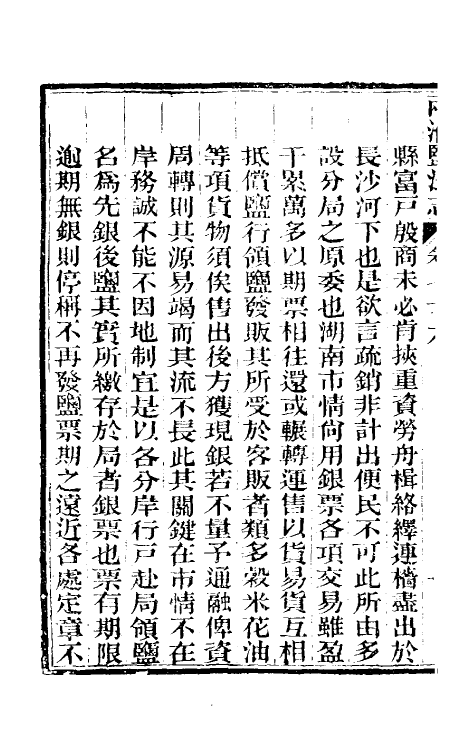 兩淮鹽法志
卷
縣富戸殷商未必肯挾重資勞舟楫絡繹連檣盡出於
長沙河下也是欲言疏銷非計出便民不可此所由多
設分局之原委也湖南市情尙用銀票各項交易雖盈
千累萬多以期票相往還或輾轉運售以貨易貨互相
抵償鹽行領鹽發販其所受於客販者類多穀米花油
等項貨物須俟售出後方獲現銀若不量予通融俾資
周轉則其源易竭而其流不長此其關鍵在市情不在
岸務誠不能不因地制宜是以各分岸行戸赴局領鹽
名爲先銀後鹽其實所繳存於局者銀票也票有期限
逾期無銀則停稱不再發鹽票期之遠近各處定章不